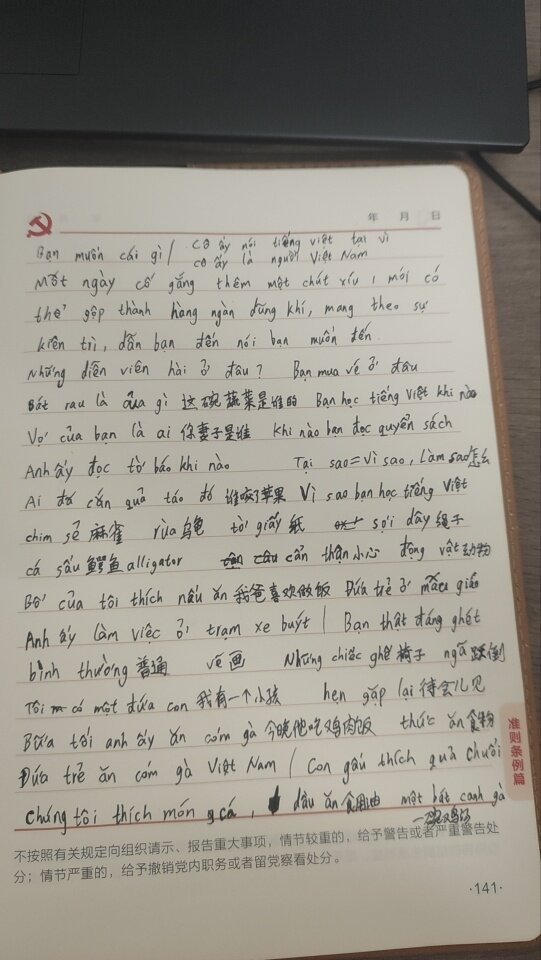 年 月 日
Bạn muốn cái gì / cô ấy nói tiếng việt tại vì
cô ấy là người Việt Nam
Mỗt ngày cố gắng thêm một chút xíu, mới có
thể gộp thành hàng ngàn dũng khí, mang theo sự
kiên trì, dẫn bạn đến nói bạn muốn đến.
Những diễn viên hài ở đâu? Bạn mua vé ở đâu
Bát rau là của gì 这碗蔬菜是谁的 Bạn học tiếng Việt khi nào
Vợ của bạn là ai 你妻子是谁 Khi nào bạn đọc quyển sách
Anh ấy đọc tờ báo khi nào Tại sao=vì sao, làm sao怎么
Ai đã cắn quả táo đó 谁咬了苹果 Vì sao bạn học tiếng Việt
chim sẻ 麻雀 rùa 乌龟 tờ giấy 纸 sợi dây 绳子
cá sấu 鳄鱼 alligator cẩn thận 小心 động vật 动物
Bố của tôi thích nấu ăn 我爸喜欢做饭 Đứa trẻ ở mẫu giáo
Anh ấy làm việc ở trạm xe buýt / Bạn thật đáng ghét
bình thường 普通 vẽ 画 Những chiếc ghế 椅子 ngã 跌倒
Tôi có một đứa con 我有一个小孩 hẹn gặp lại 待会儿见
Bữa tối anh ấy ăn cơm gà 今晚他吃鸡肉饭 thức ăn 食物
Đứa trẻ ăn cơm gà Việt Nam / Con gấu thích quả chuối
Chúng tôi thích món cá, dầu ăn 食用油 một bát canh gà
一碗鸡汤
准则条例篇
不按照有关规定向组织请示、报告重大事项，情节较重的，给予警告或者严重警告处
分；情节严重的，给予撤销党内职务或者留党察看处分。
·141·